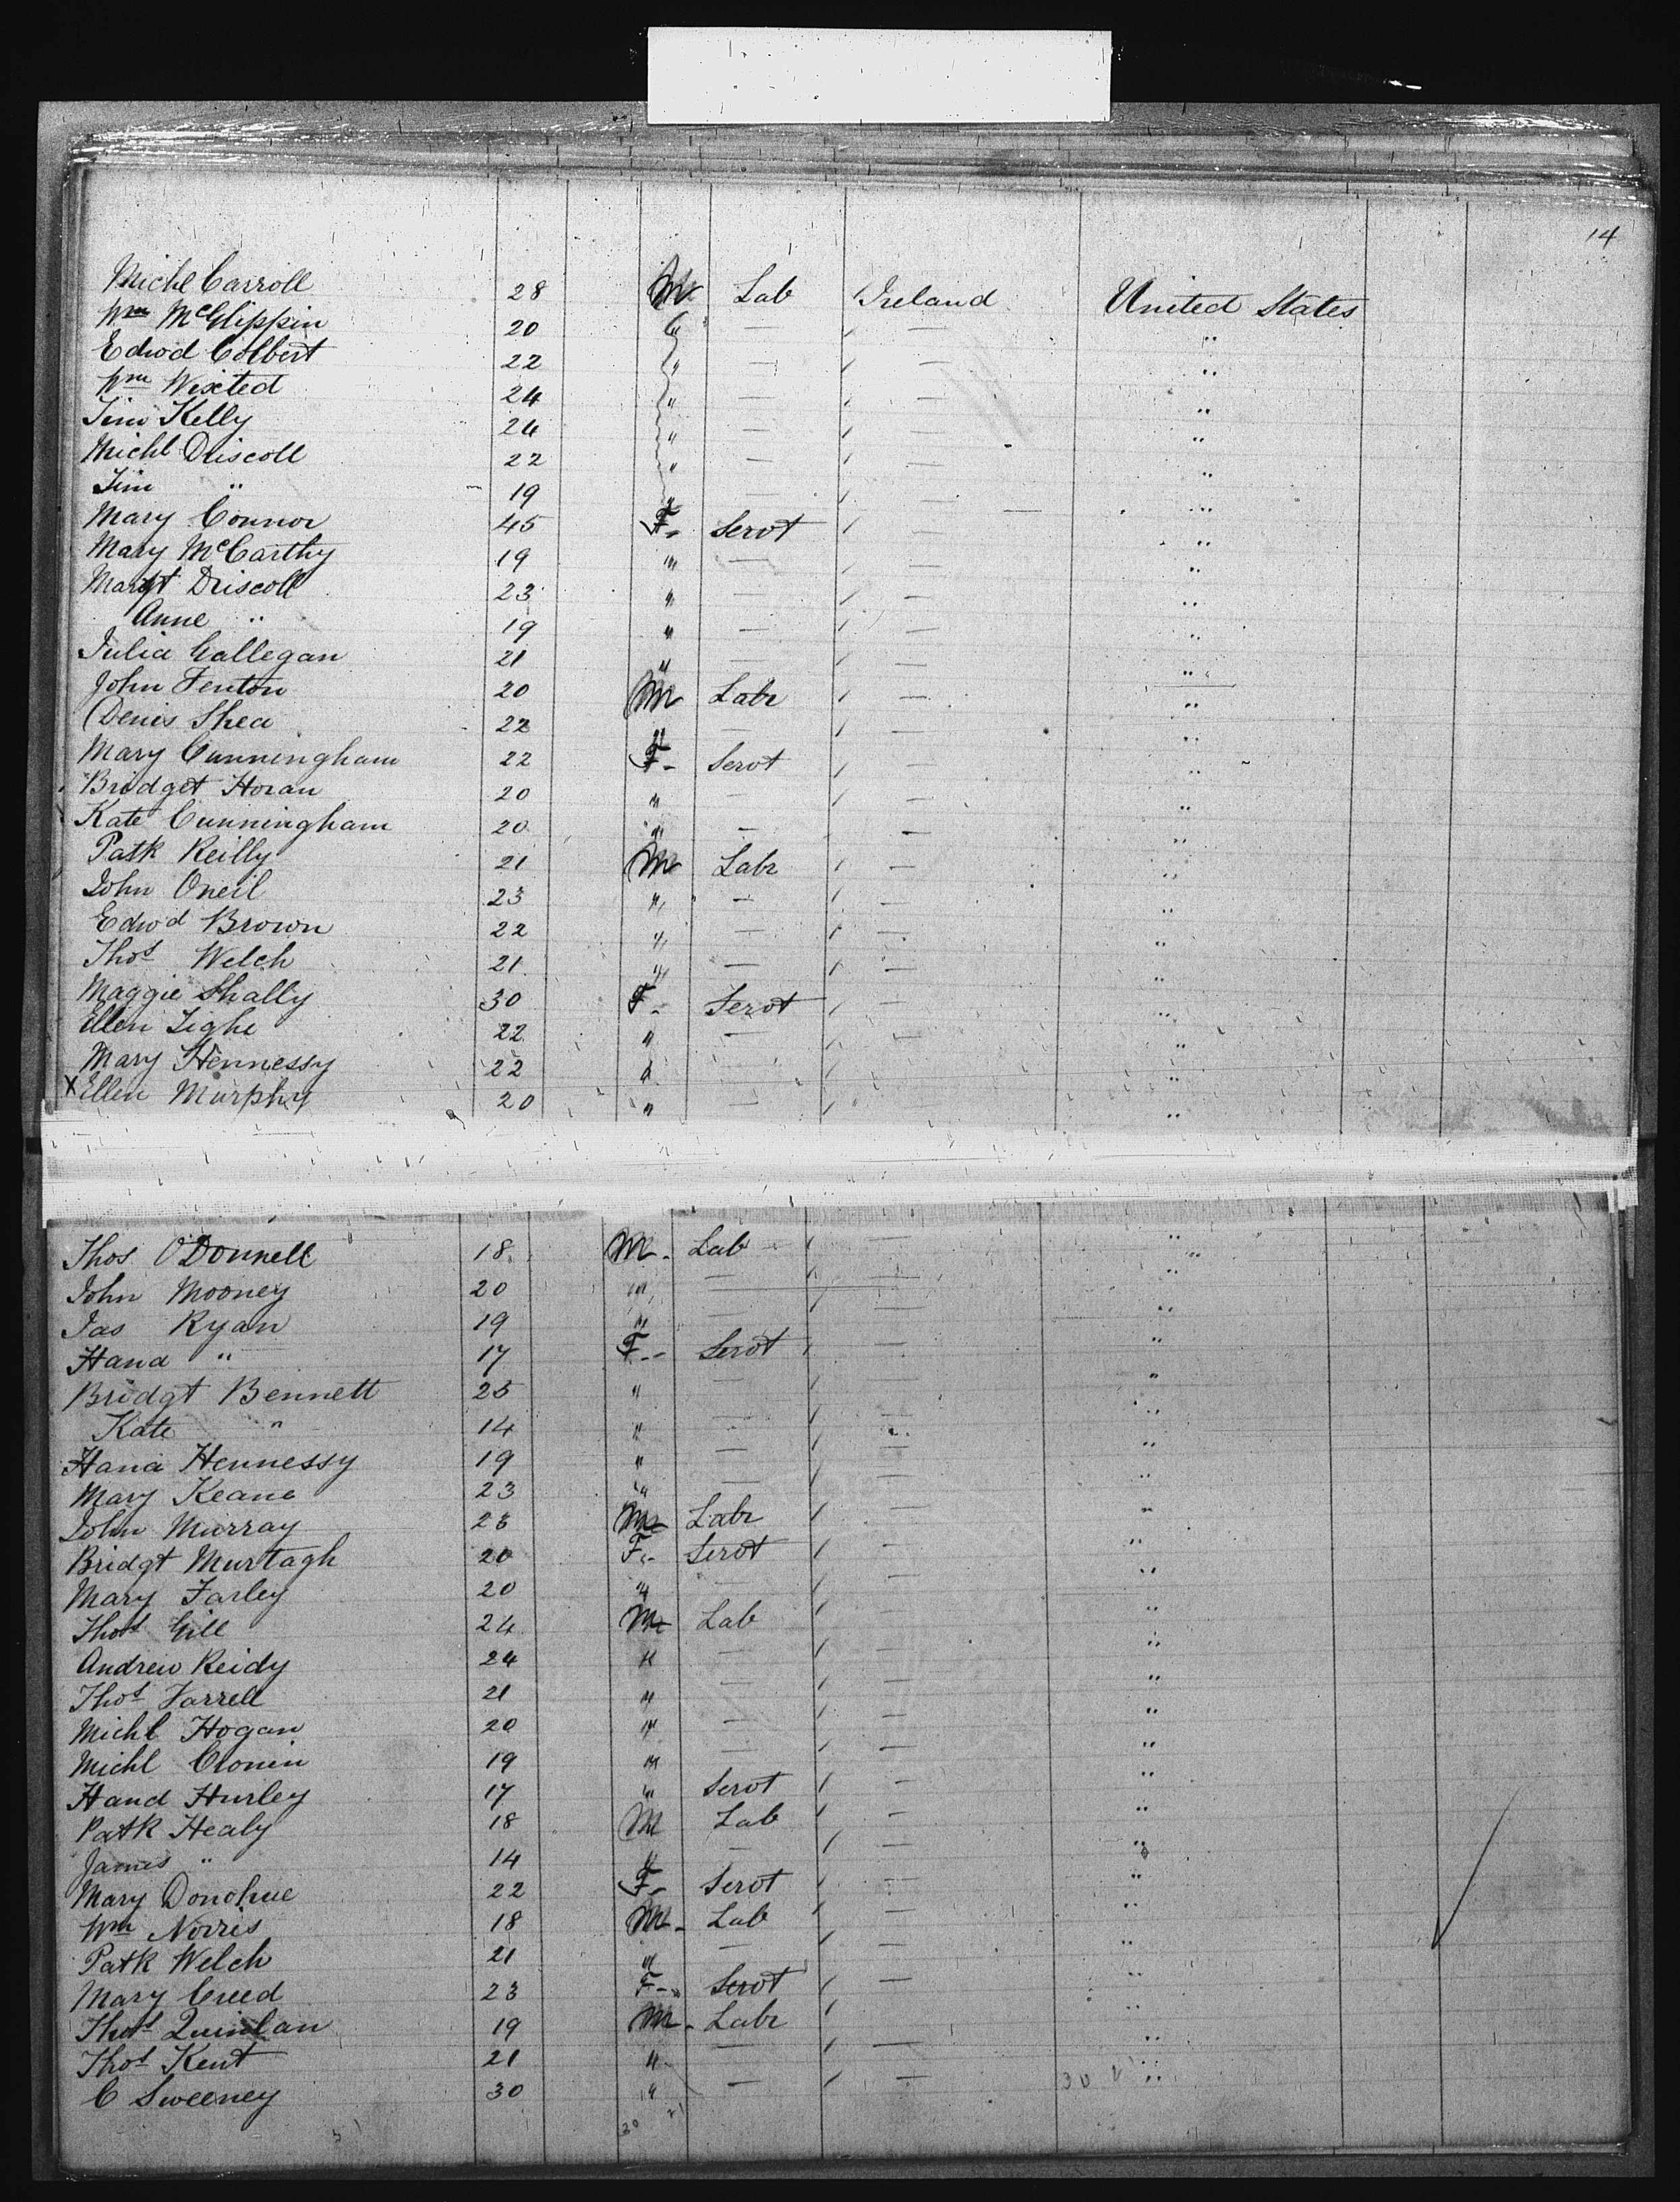 14
Michl Carroll 28 M Lab Ireland United States
Wm McGlippin 20 " — " — "
Edwd Colbert 22 " — " — "
Wm Wixted 24 " — " — "
Tim Kelly 24 " — " — "
Michl Driscoll 22 " — " — "
Tim " 19 " — " — "
Mary Connor 45 F- Servt " — "
Mary McCarthy 19 " — " — "
Margt Driscoll 23 " — " — "
Anne " 19 " — " — "
Julia Gallegan 21 " — " — "
John Fenton 20 M Labr " — "
Denis Shea 22 " — " — "
Mary Cunningham 22 F- Servt " — "
Bridget Horan 20 " — " — "
Kate Cunningham 20 " — " — "
Patk Reilly 21 M Labr " — "
John Oneil 23 " — " — "
Edwd Brown 22 " — " — "
Thos Welch 21 " — " — "
Maggie Shally 30 F- Servt " — "
Ellen Tighe 22 " — " — "
Mary Hennessy 22 " — " — "
X Ellen Murphy 20 " — " "
Thos O'Donnell 18 M- Lab " "
John Mooney 20 " — " — "
Jas Ryan 19 " — " — "
Hana " 17 F- Servt " — "
Bridgt Bennett 25 " — " "
Kate " 14 " — " — "
Hana Hennessy 19 " — " — "
Mary Keane 23 " — " "
John Murray 23 M Labr " — "
Bridgt Murtagh 20 F- Servt " — "
Mary Farley 20 " — " — "
Thos Gill 24 M Lab " — "
Andrew Reidy 24 " — " — "
Thos Farrell 21 " — " — "
Michl Hogan 20 " — " — "
Michl Cronin 19 " — " — "
Hand Hurley 17 " Servt " — "
Patk Healy 18 M Lab " — "
James " 14 " — " — "
Mary Donohue 22 F- Servt " — "
Wm Norris 18 M- Lab " — "
Patk Welch 21 " — " — "
Mary Creed 23 F- Servt " — "
Thos Quinlan 19 M- Labr " "
Thos Kent 21 " — " — "
C Sweeney 30 " — " — 30 21 "
30 21